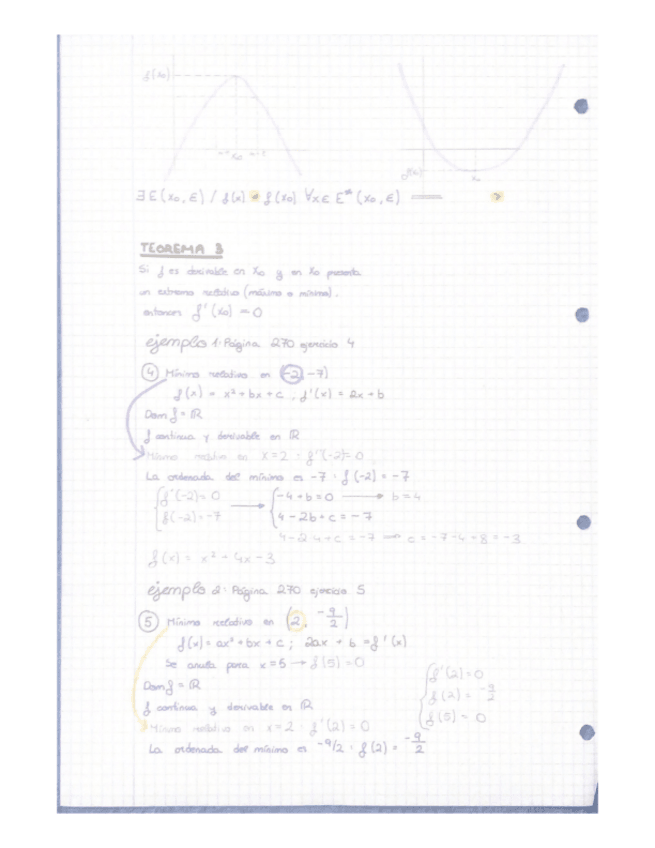 f(x₀)
x₀
x₀
∃ E(x₀, ε) / f(x) f(x₀) ∀x ∈ E*(x₀, ε)
TEOREMA 3
Si f es derivable en x₀ y en x₀ presenta
un extremo relativo (máximo o mínimo),
entonces f'(x₀) = 0
ejemplo 1: Página 270 ejercicio 4
4 Mínimo relativo en (-2, -7)
f(x) = x² + bx + c , f'(x) = 2x + b
Dom f = ℝ
f continua y derivable en ℝ
Mínimo relativo en x=2 : f'(-2)= 0
La ordenada del mínimo es -7 : f(-2) = -7
f'(-2) = 0 → -4 + b = 0 → b = 4
f(-2) = -7 4 - 2b + c = -7
4 - 2·4 + c = -7 → c = -7 - 4 + 8 = -3
f(x) = x² + 4x - 3
ejemplo 2: Página 270 ejercicio 5
5 Mínimo relativo en (2, -9/2)
f(x) = ax² + bx + c ; 2ax + b = f'(x)
Se anula para x = 5 → f(5) = 0
Dom f = ℝ
f continua y derivable en ℝ
Mínimo relativo en x = 2 : f'(2) = 0
La ordenada del mínimo es -9/2 : f(2) = -9/2
f'(2) = 0
f(2) = -9/2
f(5) = 0